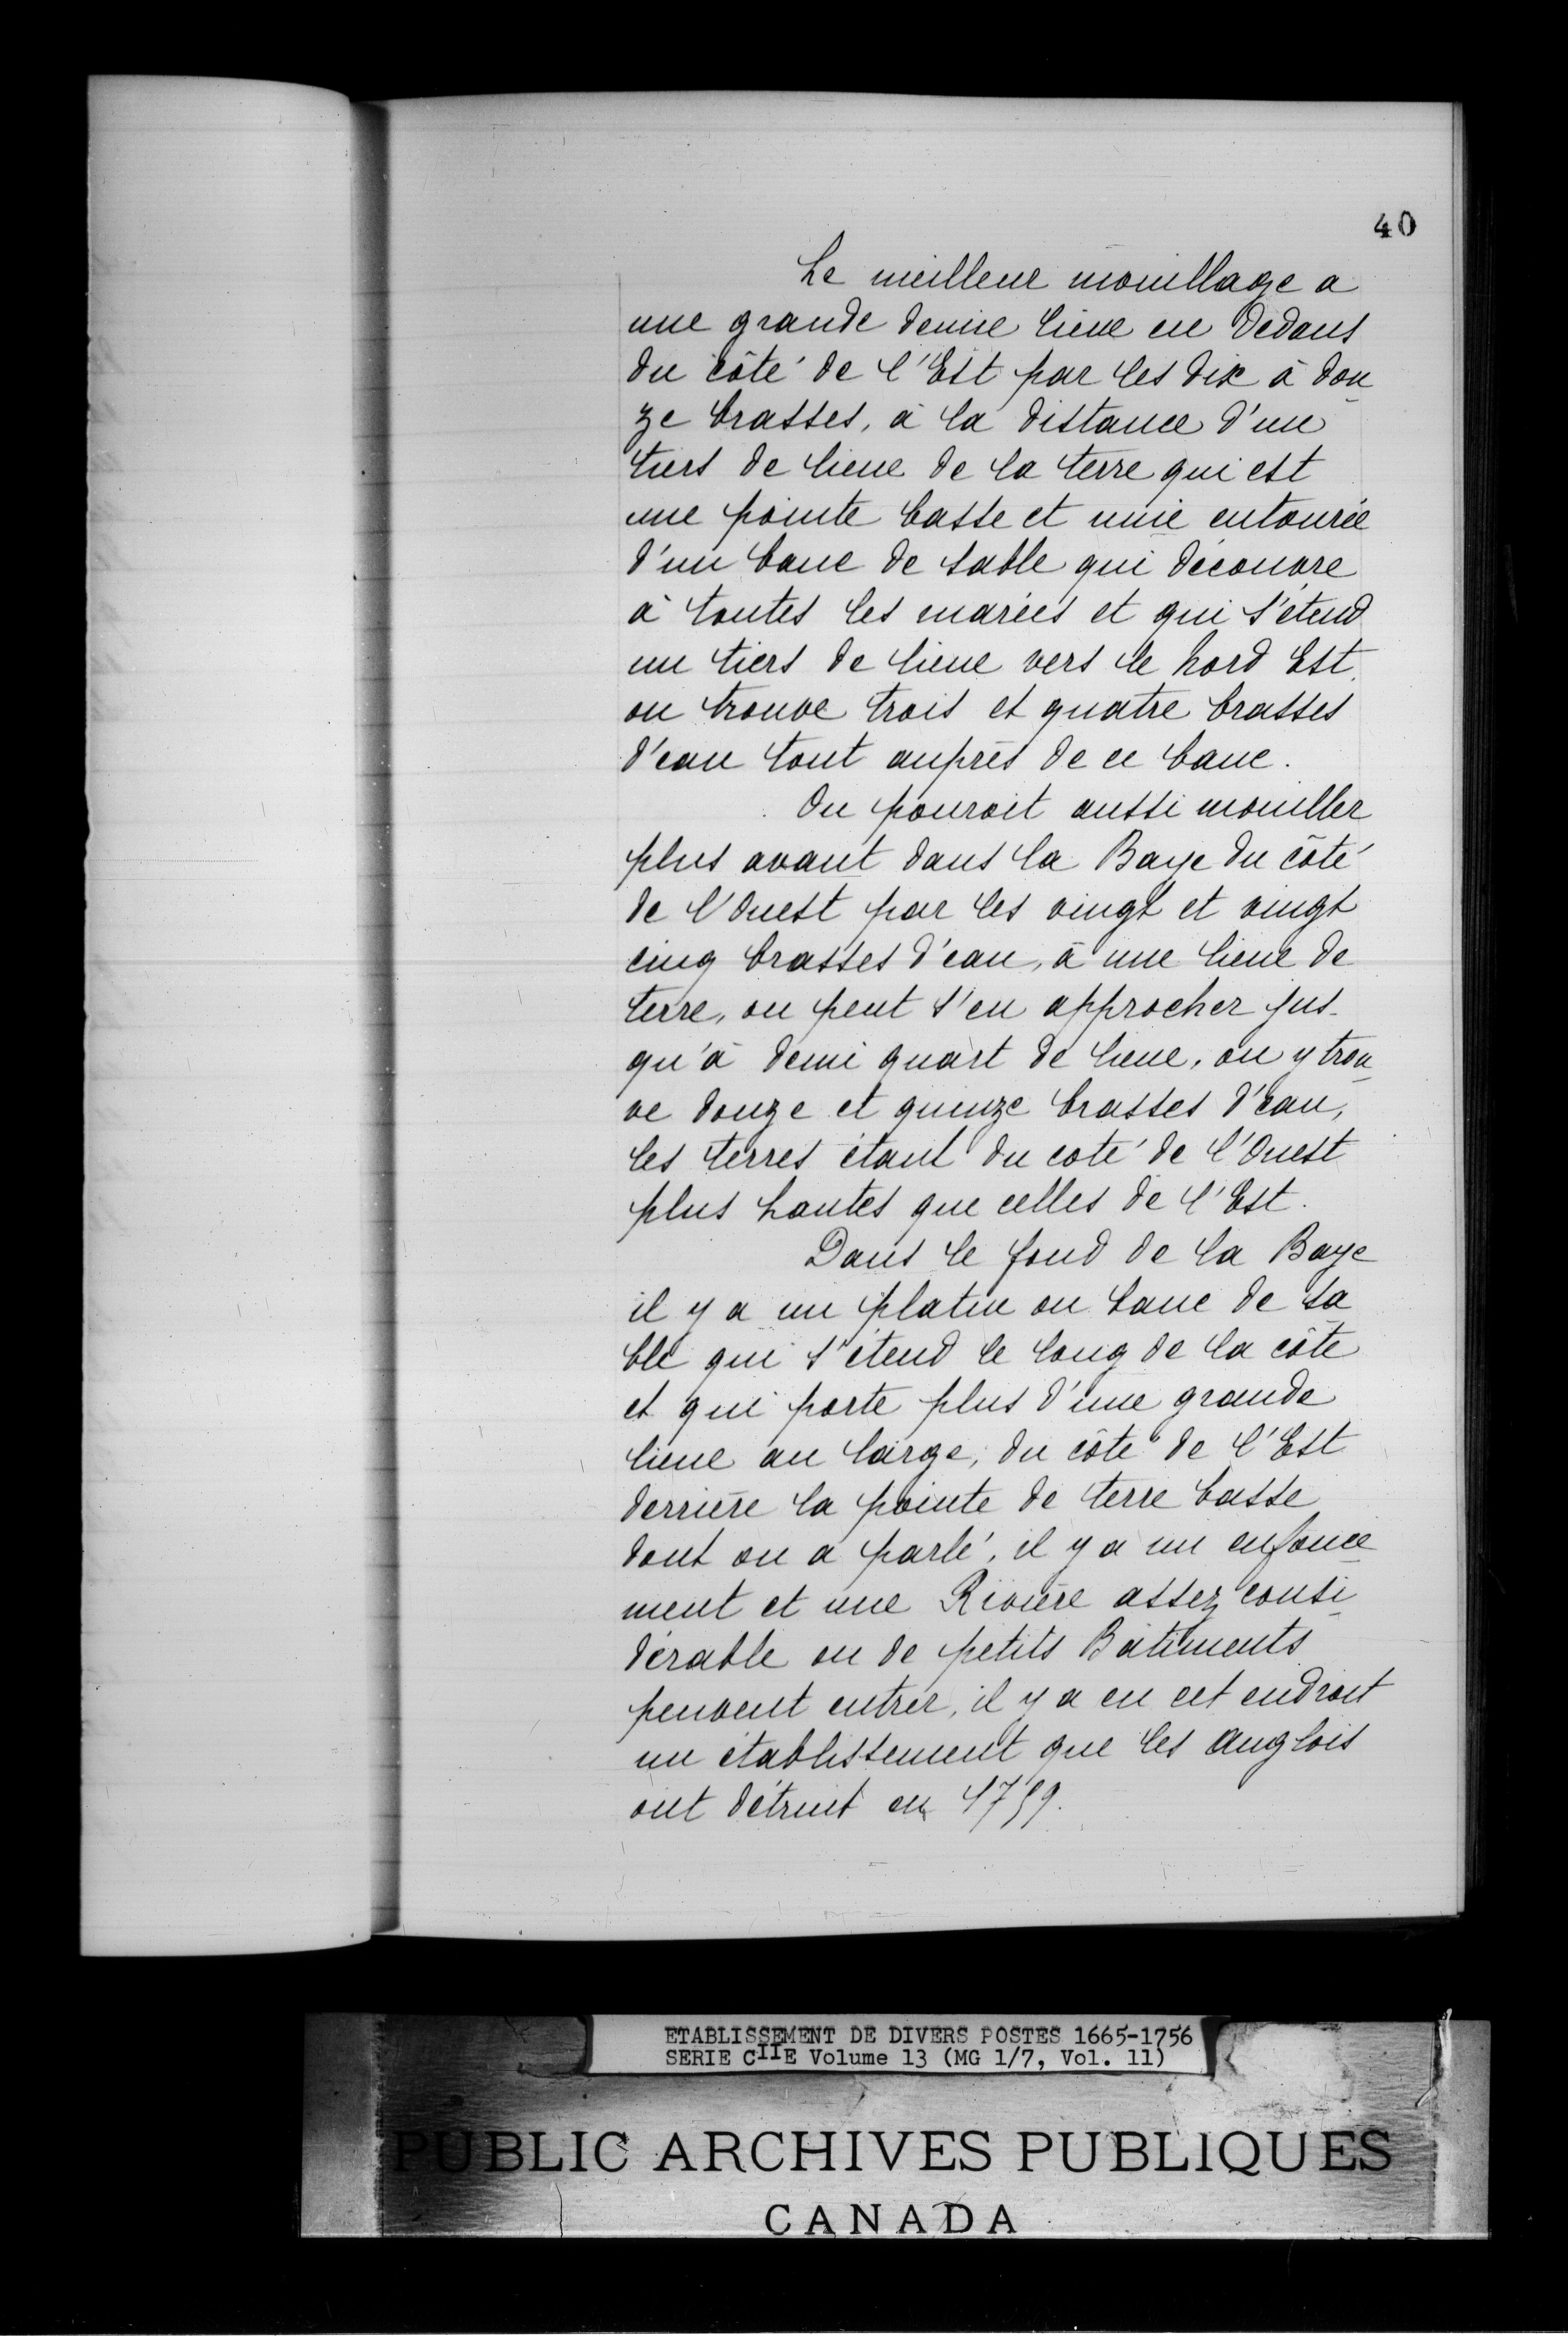 40
Le meilleur mouillage a
une grande demie lieue en dedans
du côté de l'Est par les dix à dou
ze brasses, à la distance d'un
tiers de lieue de la terre qui est
une pointe basse et unie entourée
d'un banc de sable qui découvre
à toutes les marées et qui s'étend
un tiers de lieue vers le Nord Est,
on trouve trois et quatre brasses
d'eau tout auprès de ce banc.
On pouroit aussi mouiller
plus avant dans la Baye du côté
de l'Ouest par les vingt et vingt
cinq brasses d'eau, à une lieue de
terre, on peut s'en approcher jus-
qu'à demi quart de lieue, on y trou
ve douze et quinze brasses d'eau,
les terres étant du coté de l'Ouest
plus hautes que celles de l'Est.
Dans le fond de la Baye
il y a un platin ou banc de sa
ble qui s'étend le long de la côte
et qui porte plus d'une grande
lieue au large, du côté de l'Est
derrière la pointe de terre basse
dont on a parlé, il y a un enfonce
ment et une Rivière assez consi
dérable ou de petits Bâtiments
peuvent entrer, il y a en cet endroit
un établissement que les Anglois
ont détruit en 1759.
ETABLISSEMENT DE DIVERS POSTES 1665-1756
SERIE CIIE Volume 13 (MG 1/7, Vol. 11)
PUBLIC ARCHIVES PUBLIQUES
CANADA